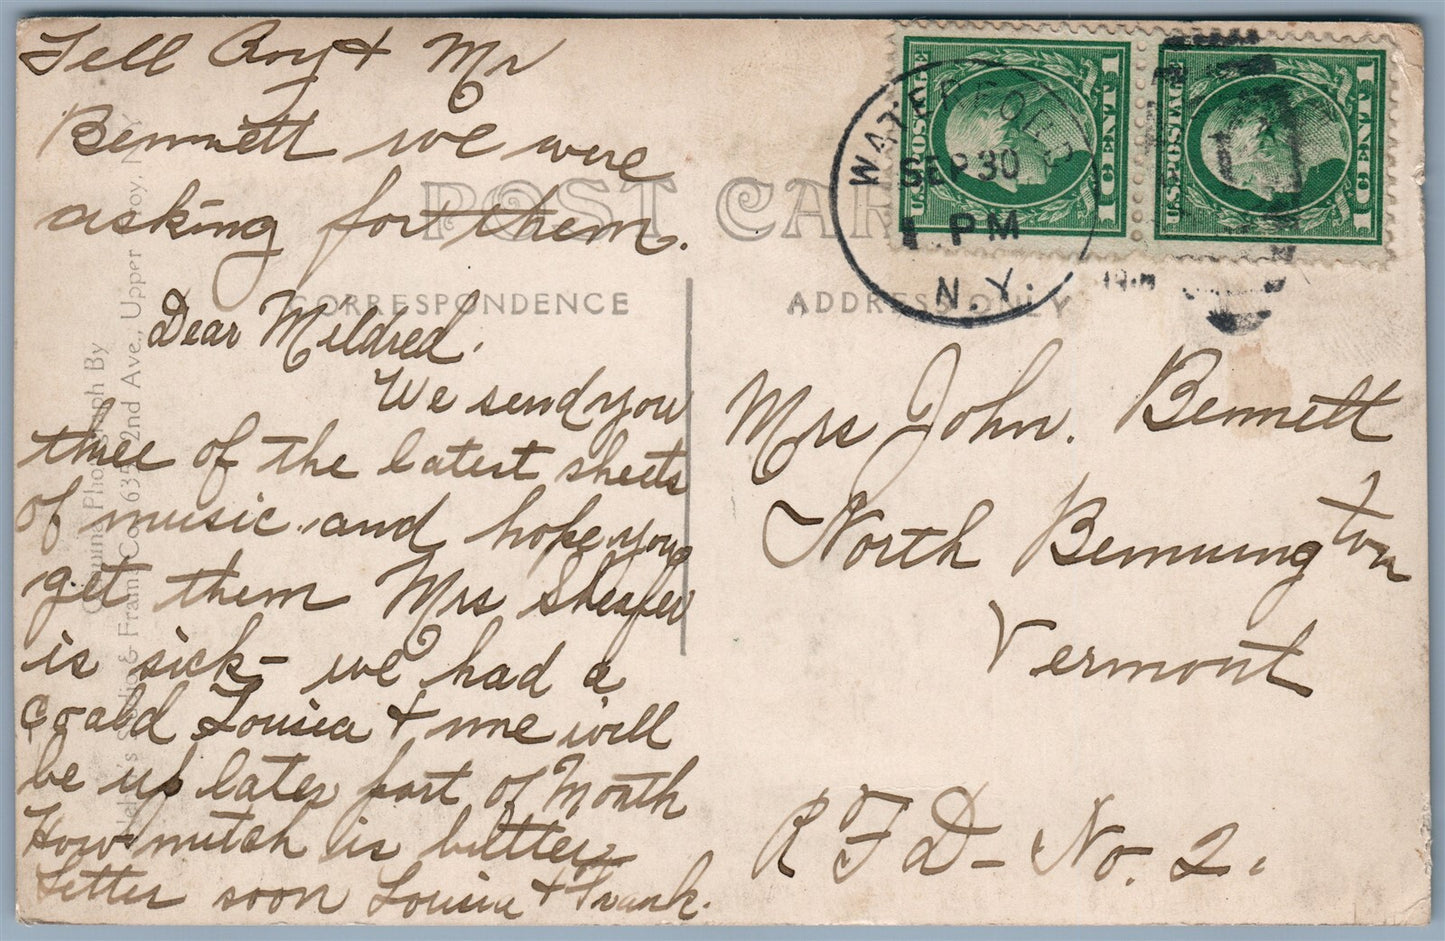 Tell Roy & Mr
Bennett we were
asking for them.
POST CAR
CORRESPONDENCE
ADDRESS ONLY
Dear Mildred.
We send you
three of the latest sheets
of music. and hope you
get them Mrs Sheafer
is sick - we had a
coald Louisa & me will
be up later part of Month
How mutch is butter
Letter soon Louisa & Frank.
Mrs John. Bennett
North Bennungton
Vermont
R F D - No. 2.
WATERFORD
SEP 30
1 PM
N.Y.
U.S. POSTAGE
1 CENT 1
U.S. POSTAGE
1 CENT 1
Genuine Photograph By
's Studio & Frame Co., 635 2nd Ave., Upper Troy, N.Y.